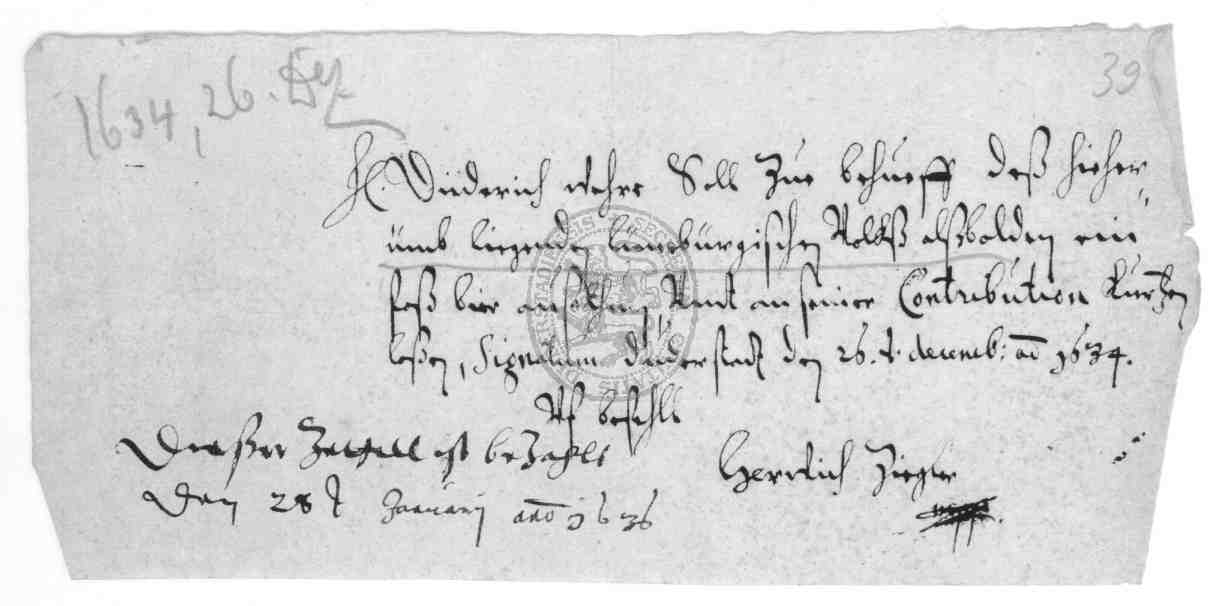 1634, 26. Dez
39
H. Diederich wehre Soll Zue behueff deß hieher,,
umb liegenden lüneburgischen Volckß alßbalden ein
faß bier an seiner Contribution kürtzen
laßen, Signatum Duderstadt den 26.t. decemb: aō 1634.
Vf befehll
Dießer Zettell ist beZahlt
Den 28 t Januarij anō 1636
Henrich Ziegler